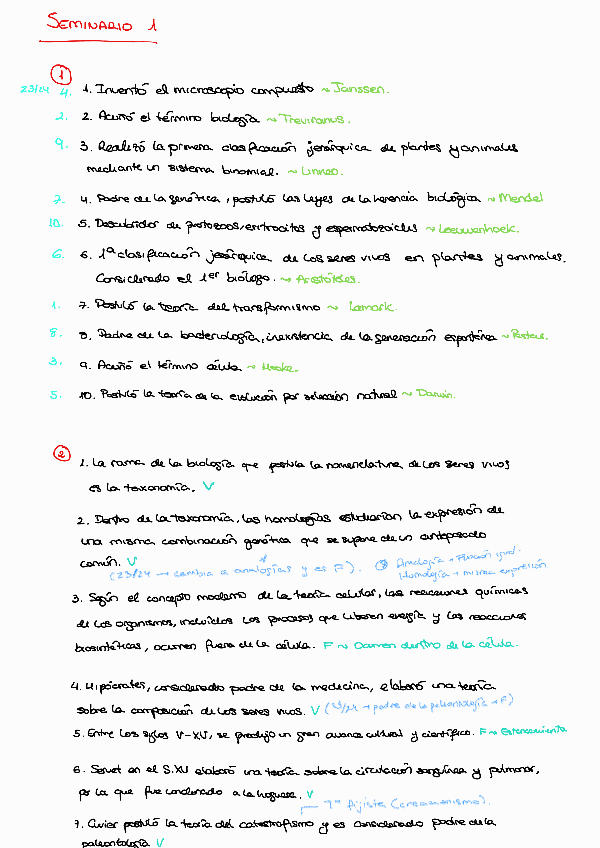 SEMINARIO 1
①
23/24 4. 1. Inventó el microscopio compuesto ~ Janssen.
2. 2. Acuñó el término biología ~ Treviranus.
9. 3. Realizó la primera clasificación jerárquica de plantes y animales
mediante un sistema binomial. ~ Linneo.
7. 4. Padre de la genética, postuló las leyes de la herencia biológica ~ Mendel
10. 5. Descubridor de protozoos, eritrocitos y espermatozoides ~ Leeuwenhoek.
6. 6. 1ª clasificación jerárquica de los seres vivos en plantes y animales.
Considerado el 1er biólogo. ~ Aristóteles.
1. 7. Postuló la teoría del transformismo ~ Lamark.
8. 8. Padre de la bacteriología, inexistencia de la generación espontánea ~ Pasteur.
3. 9. Acuñó el término célula ~ Hooke.
5. 10. Postuló la teoría de la evolución por selección natural ~ Darwin.
②
1. La rama de la biología que postula la nomenclatura de los seres vivos
es la taxonomía. V
2. Dentro de la taxonomía, las homologías estudiarían la expresión de
una misma combinación genética que se supone de un antepasado
común. V
(23/24 → cambia a analogías y es F). Analogía → Función igual.
Homología → misma expresión
3. Según el concepto moderno de la teoría celular, las reacciones químicas
de los organismos, incluidos los procesos que liberan energía y las reacciones
biosintéticas, ocurren fuera de la célula. F ~ Ocurren dentro de la célula.
4. Hipócrates, considerado padre de la medicina, elaboró una teoría
sobre la composición de los seres vivos. V (23/24 → padre de la paleontología → F)
5. Entre los siglos V-XV, se produjo un gran avance cultural y científico. F ~ Estancamiento
6. Servet en el S.XV elaboró una teoría sobre la circulación sanguínea y pulmonar,
por la que fue condenado a la hoguera. V
fijista (creacionismo).
7. Cuvier postuló la teoría del catastrofismo y es considerado padre de la
paleontología V